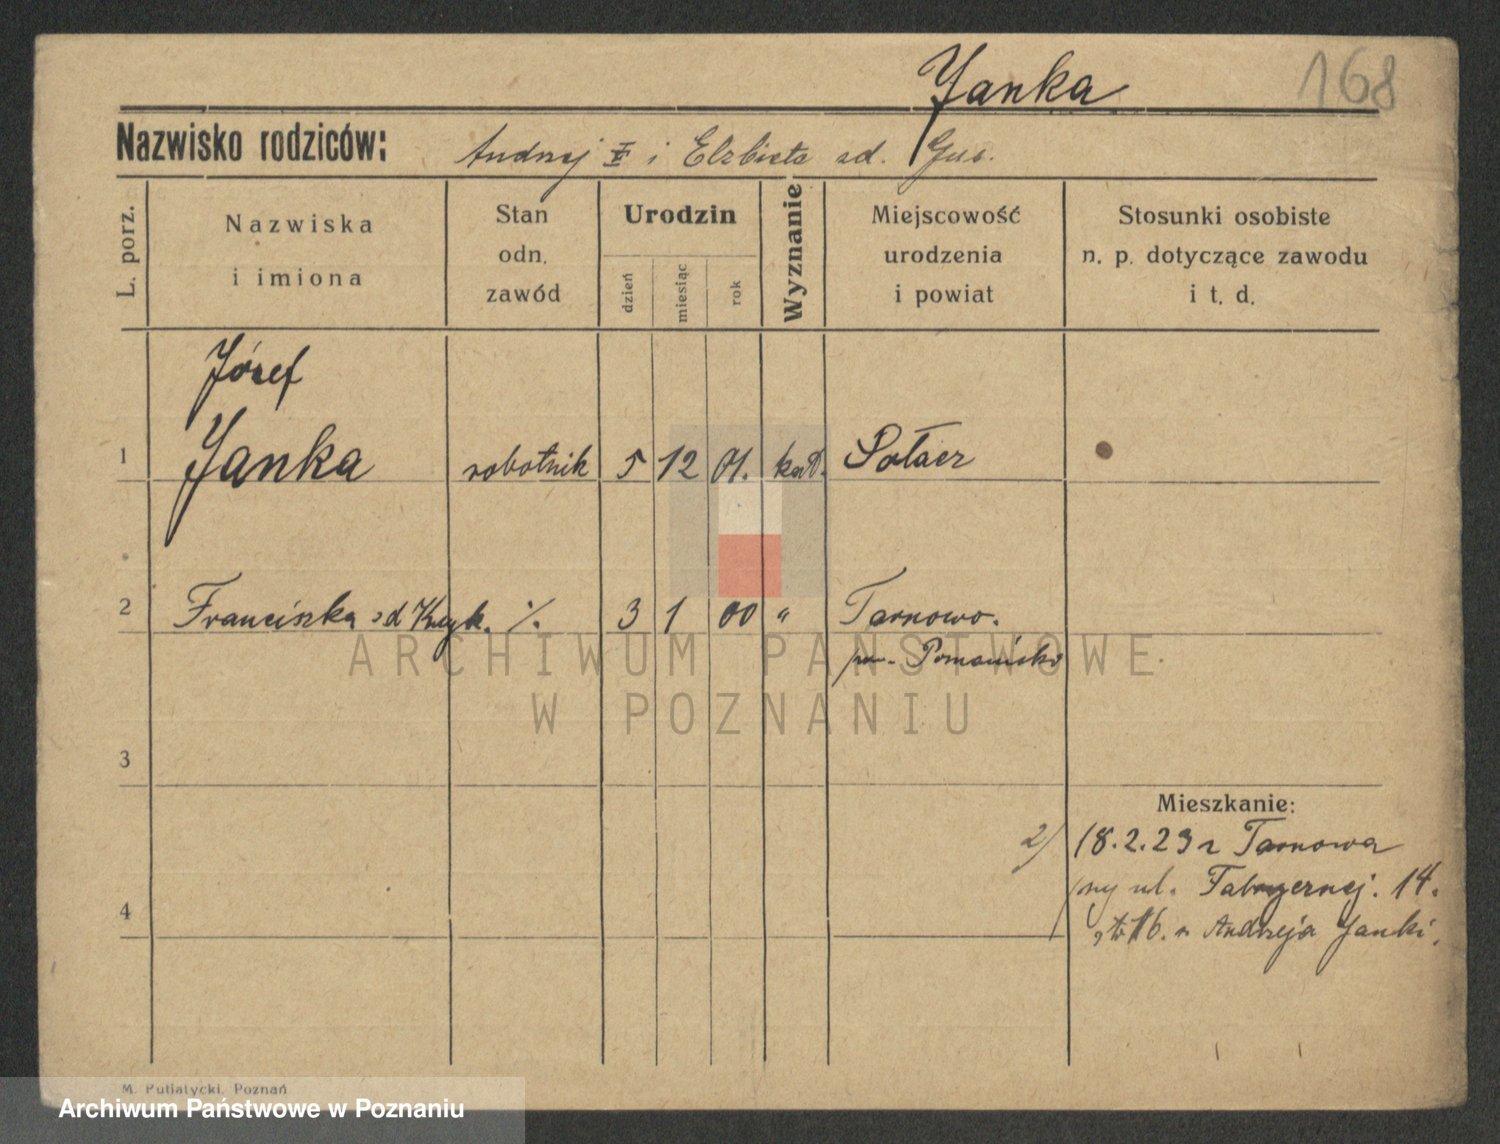 Yanka
168
Nazwisko rodziców: Andrzej i Elżbieta zd. Gus.
L. porz.
Nazwiska i imiona
Stan odn. zawód
Urodzin
dzień
miesiąc
rok
Wyznanie
Miejscowość urodzenia i powiat
Stosunki osobiste n. p. dotyczące zawodu i t. d.
Józef
1 Yanka robotnik 5 12 01. kat. Sołacz
2 Franciszka zd ./. 3 1 00 " Tarnowo.
pow. Poznański
3
Mieszkanie:
2) 18.2.23 z Tarnowa
przy ul. 14.
4
16. Andrzeja Janki.
M. Putiatycki, Poznań
ARCHIWUM PAŃSTWOWE
W POZNANIU
Archiwum Państwowe w Poznaniu